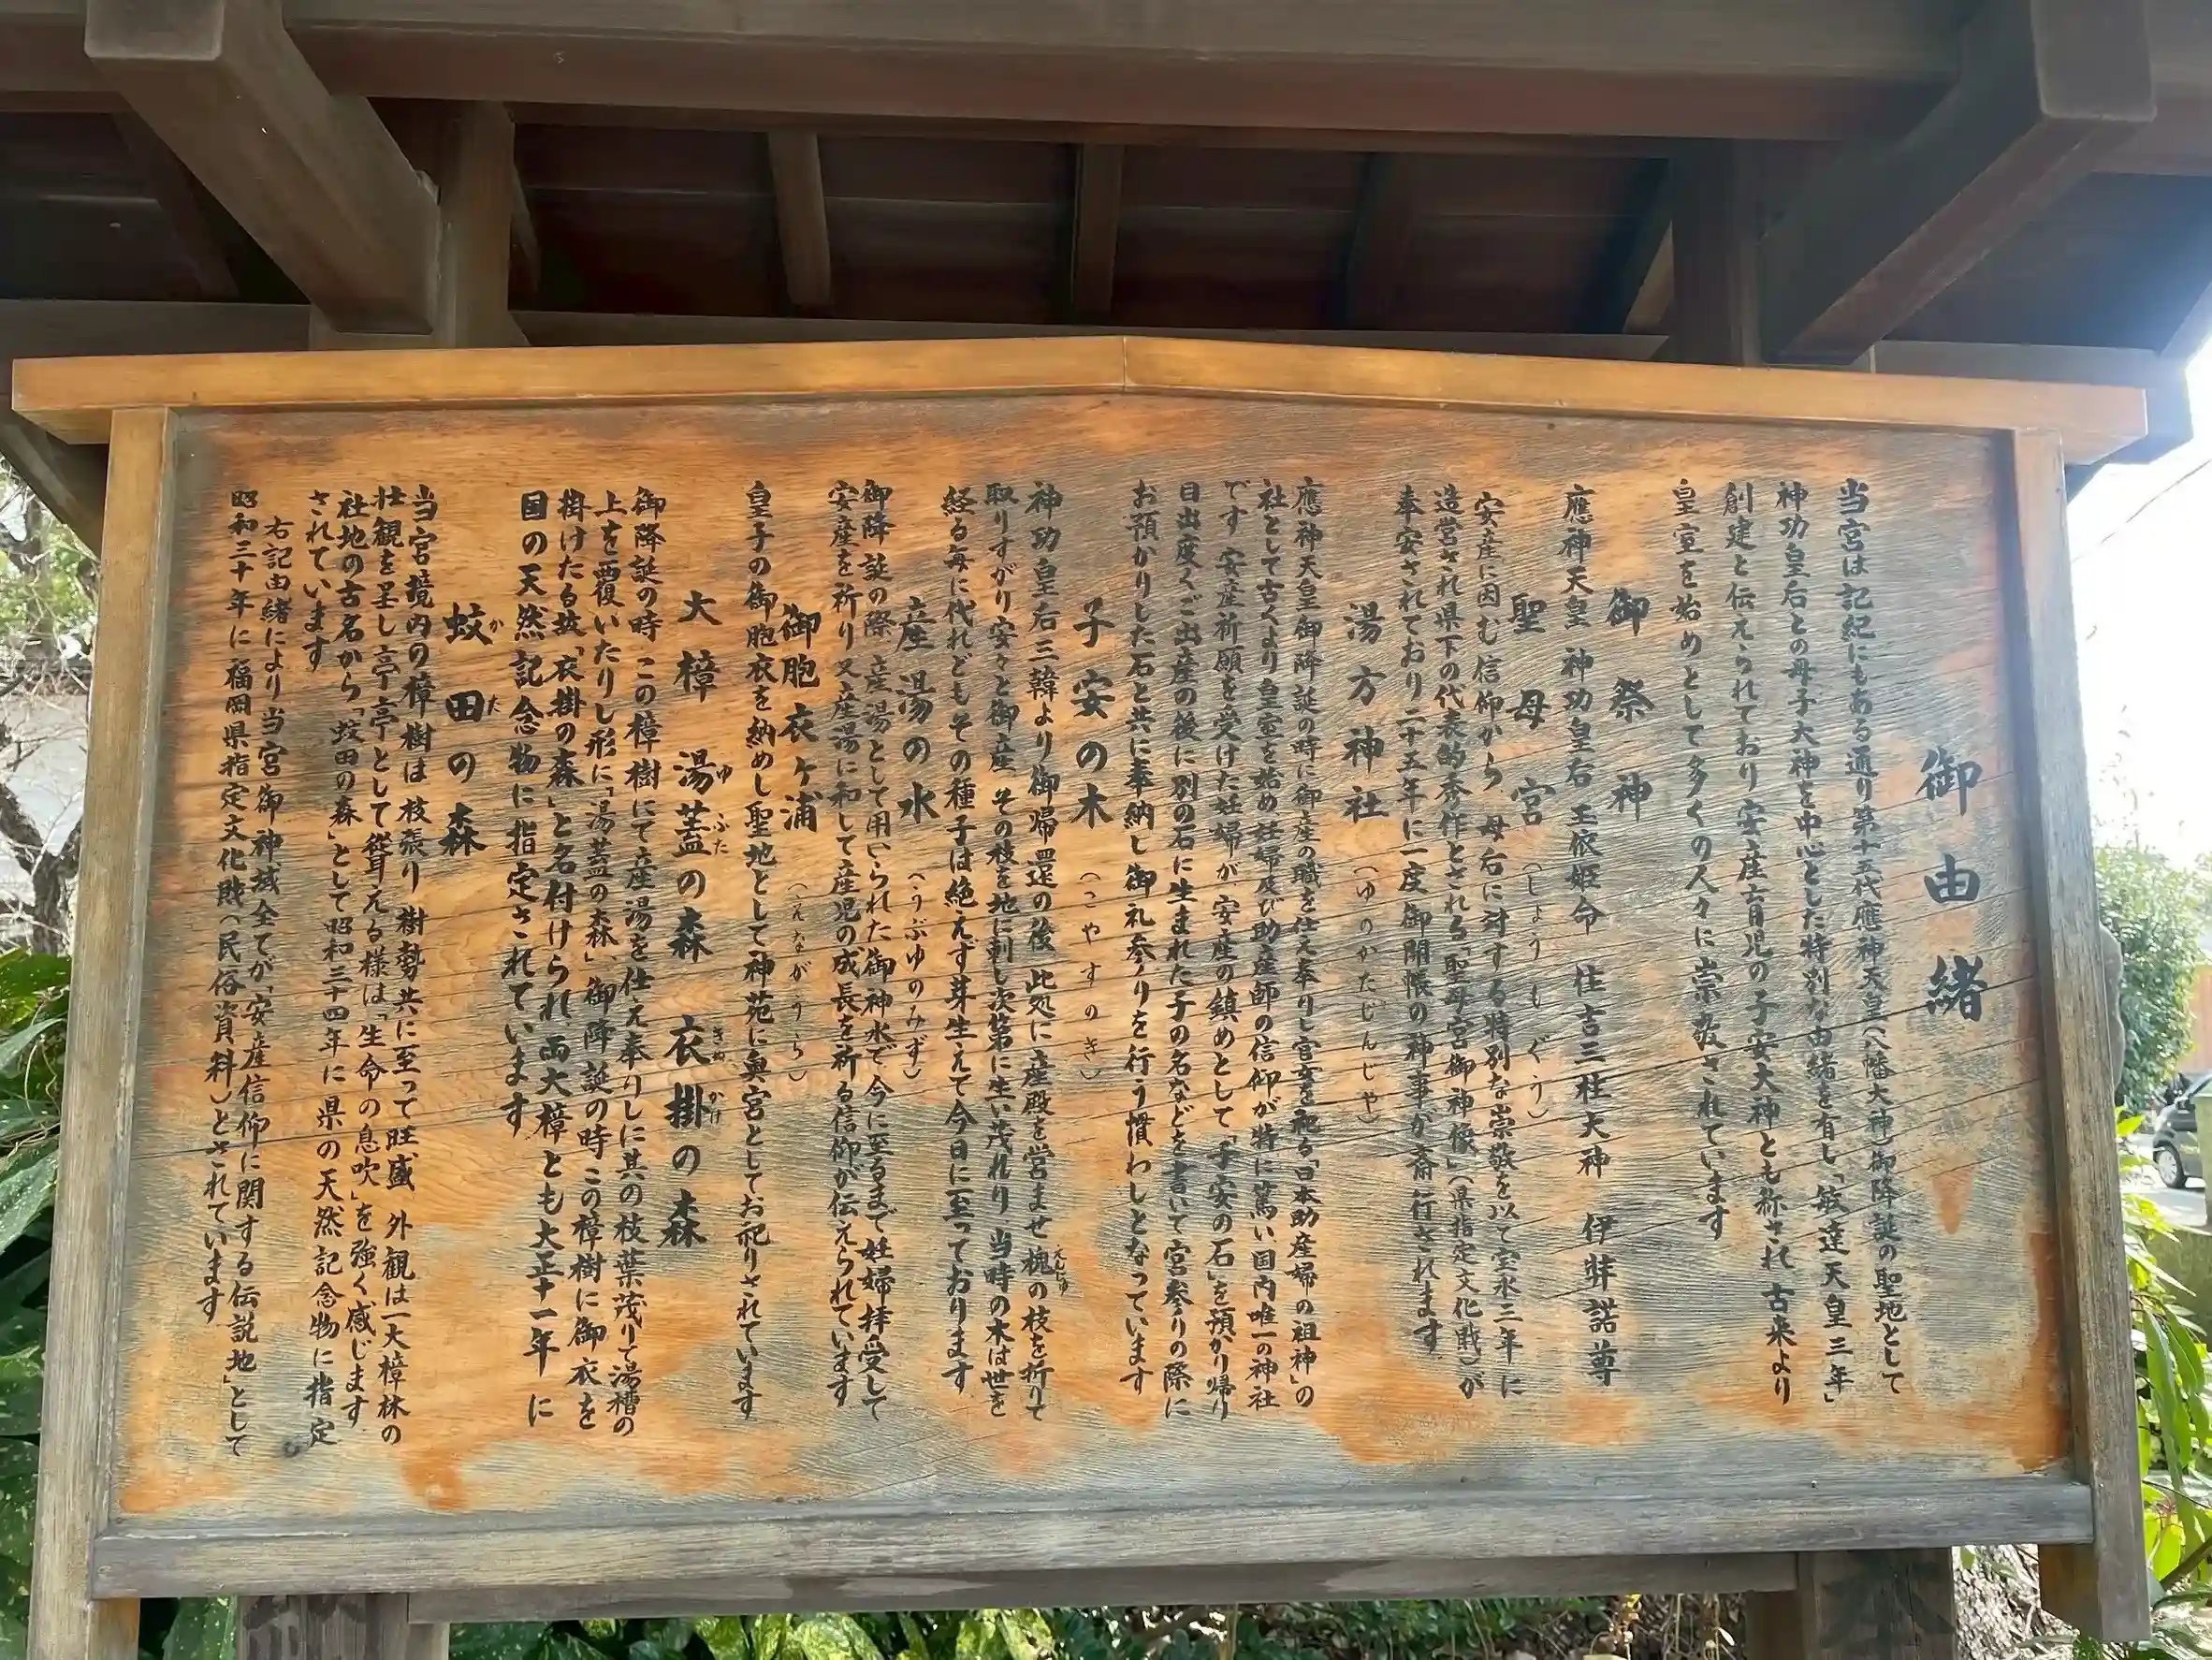 御由緒
当宮は記紀にもある通り第十五代應神天皇(八幡大神)御降誕の聖地として
神功皇后との母子大神を中心とした特別な由緒を有し「敏達天皇三年」
創建と伝えられており安産育児の子安大神とも称され古来より
皇室を始めとして多くの人々に崇敬されています
御祭神
應神天皇 神功皇后 玉依姫命 住吉三柱大神 伊弉諾尊
聖母宮(しょうもぐう)
安産に因む信仰から、母后に対する特別な崇敬を以て宝永三年に
造営され県下の代表的秀作とされる「聖母宮御神像」(県指定文化財)が
奉安されており二十五年に一度御開帳の神事が斎行されます
湯方神社(ゆのかたじんじゃ)
應神天皇御降誕の時に御産の職を仕え奉りし官女を祀る「日本助産婦の祖神」の
社として古くより皇室を始め妊婦及び助産師の信仰が特に篤い国内唯一の神社
です 安産祈願を受けた妊婦が、安産の鎮めとして「子安の石」を預かり帰り
目出度くご出産の後に別の石に生まれた子の名などを書いて宮参りの際に
お預かりした石と共に奉納し御礼参りを行う慣わしとなっています
子安の木(こやすのき)
神功皇后三韓より御帰還の後、此処に産殿を営ませ槐の枝を折りて
えんじゅ
取りすがり安々と御産、その枝を地に刺し次第に生い茂れり、当時の木は世を
経る毎に代れどもその種子は絶えず芽生えて今日に至っております
産湯の水(うぶゆのみず)
御降誕の際、産湯として用いられた御神水で今に至るまで妊婦拝受して
安産を祈り又産湯に和して産児の成長を祈る信仰が伝えられています
御胞衣ヶ浦(えながうら)
皇子の御胞衣を納めし聖地として神苑に奥宮としてお祀りされています
大樟 湯蓋の森 衣掛の森
ゆふた きぬかけ
御降誕の時、この樟樹にて産湯を仕え奉りしに其の枝葉茂りて湯槽の
上を覆いたりし形に「湯蓋の森」、御降誕の時この樟樹に御衣を
掛けたる故「衣掛の森」と名付けられ、両大樟とも大正十一年に
国の天然記念物に指定されています
蚊田の森
かた
当宮境内の樟樹は、枝張り、樹勢共に至って旺盛 外観は一大樟林の
壮観を呈し亭亭として聳える様は「生命の息吹」を強く感じます
社地の古名から「蚊田の森」として昭和三十四年に県の天然記念物に指定
されています
右記由緒により当宮御神域全てが「安産信仰に関する伝説地」として
昭和三十年に福岡県指定文化財(民俗資料)とされています